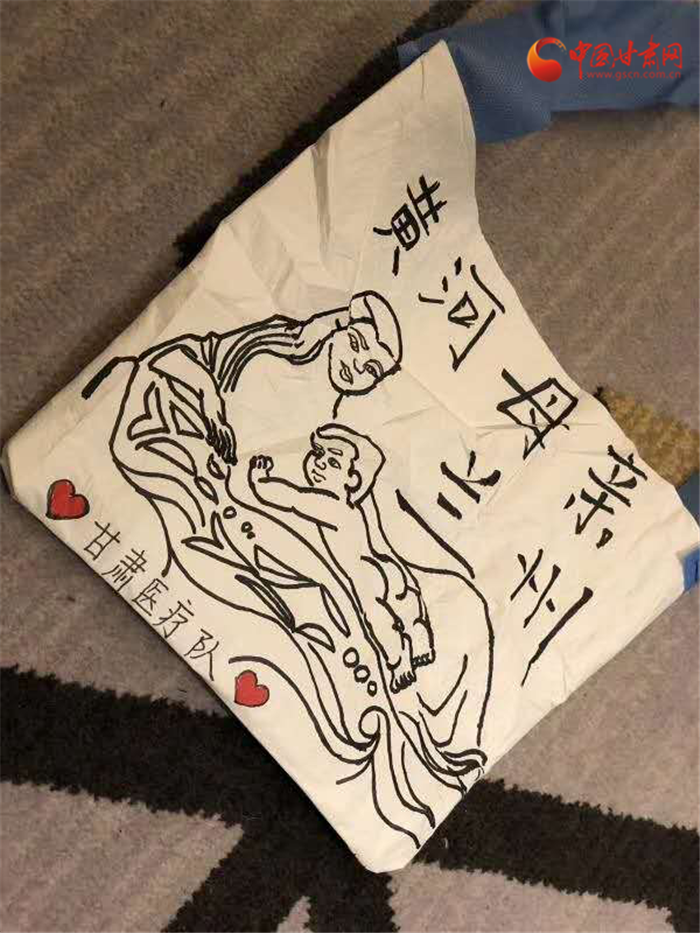 中国甘肃网
www.gscn.com.cn
黄河母亲
兰州
甘肃医疗队